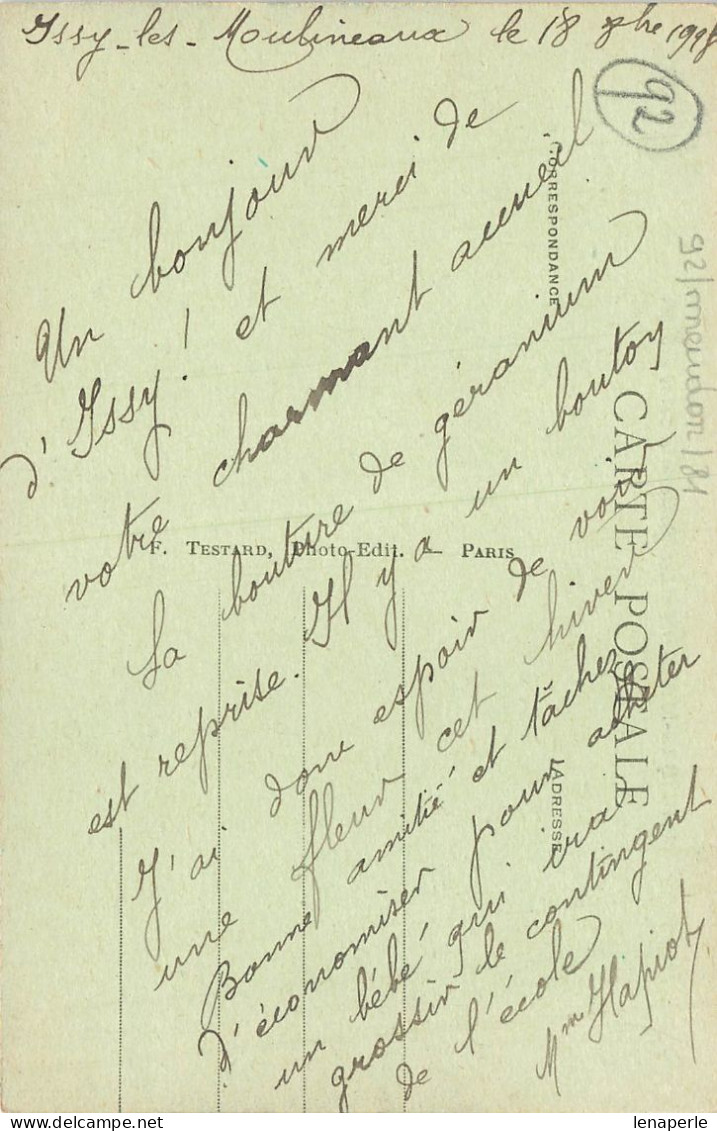 Issy-les-Moulineaux le 18
92
Un bonjour
d'Issy! et merci de
votre charmant accueil
La bouture de géranium
est reprise. Il y a un bouton
J'ai donc espoir de voir
une fleur cet hiver
Bonne amitié et tâchez
d'économiser pour acheter
un bébé qui irai
grossir le contingent
de l'école
Mme Hapiot
CORRESPONDANCE
CARTE POSTALE
ADRESSE
F. TESTARD, Photo-Edit. — PARIS
92/meudon/81
lenaperle